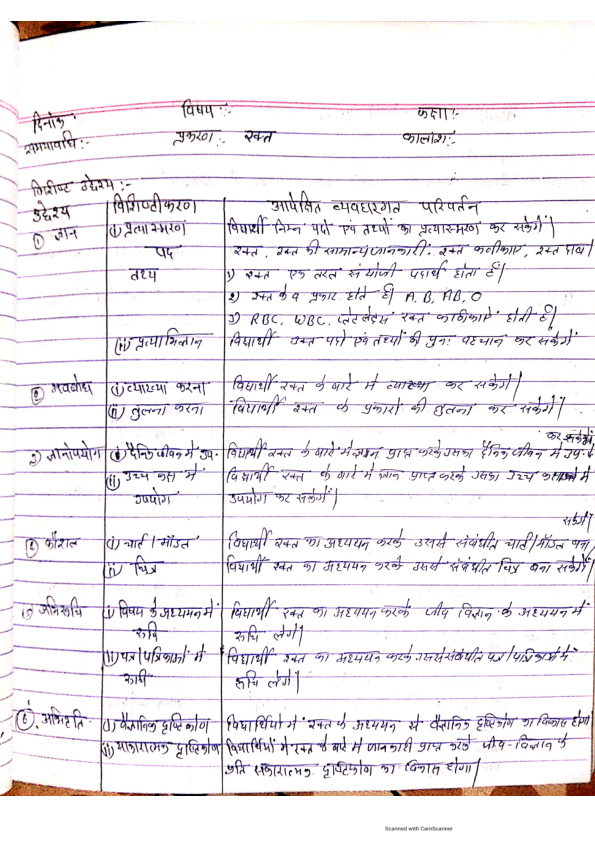 दिनांक विषय :- कक्षा :-
समयावधि :- प्रकरण : रक्त कालांश :-
विशिष्ट उद्देश्य :-
उद्देश्य विशिष्टीकरण अपेक्षित व्यवहारगत परिवर्तन
① ज्ञान (i) प्रत्यास्मरण विद्यार्थी निम्न पदों एवं तथ्यों का प्रत्यास्मरण कर सकेगें।
पद रक्त, रक्त की सामान्य जानकारी, रक्त कणीकाए, रक्त दाब।
तथ्य 1) रक्त एक तरल संयोजी पदार्थ होता है।
2) रक्त के 4 प्रकार होते है। A, B, AB, O
3) RBC, WBC, प्लेटलेट्स रक्त कणीकाएं होती है।
(ii) प्रत्याभिज्ञान विद्यार्थी उक्त पदों एवं तथ्यों की पुनः पहचान कर सकेगें
② अवबोध (i) व्याख्या करना विद्यार्थी रक्त के बारे में व्याख्या कर सकेगें।
(ii) तुलना करना विद्यार्थी रक्त के प्रकारों की तुलना कर सकेगें।
कर सकेगें
3) ज्ञानोपयोग (i) दैनिक जीवन में उप- विद्यार्थी रक्त के बारे में ज्ञान प्राप्त करके उसका दैनिक जीवन में उप-
(ii) उच्च कक्षा में विद्यार्थी रक्त के बारे में ज्ञान प्राप्त करके उसका उच्च कक्षाओं में
उपयोग उपयोग कर सकेगें।
सकेगें।
④ कौशल (i) चार्ट / मॉडल विद्यार्थी रक्त का अध्ययन करके उससे संबंधीत चार्ट/मॉडल बना
(ii) चित्र विद्यार्थी रक्त का अध्ययन करके उससे संबंधीत चित्र बना सकेगें।
अभिरूचि (i) विषय के अध्ययन में विद्यार्थी रक्त का अध्ययन करके जीव विज्ञान के अध्ययन में
रूचि रूचि लेगें।
(ii) पत्र/पत्रिकाओं में विद्यार्थी रक्त का अध्ययन करके उससे संबंधीत पत्र/पत्रिकाओं में
रूचि रूचि लेगें।
⑥. अभिवृति (i) वैज्ञानिक दृष्टिकोण विद्यार्थियों में रक्त के अध्ययन से वैज्ञानिक दृष्टिकोण का विकास होगा
(ii) सकारात्मक दृष्टिकोण विद्यार्थियों में रक्त के बारे में जानकारी प्राप्त करके जीव-विज्ञान के
प्रति सकारात्मक दृष्टिकोण का विकास होगा।
Scanned with CamScanner